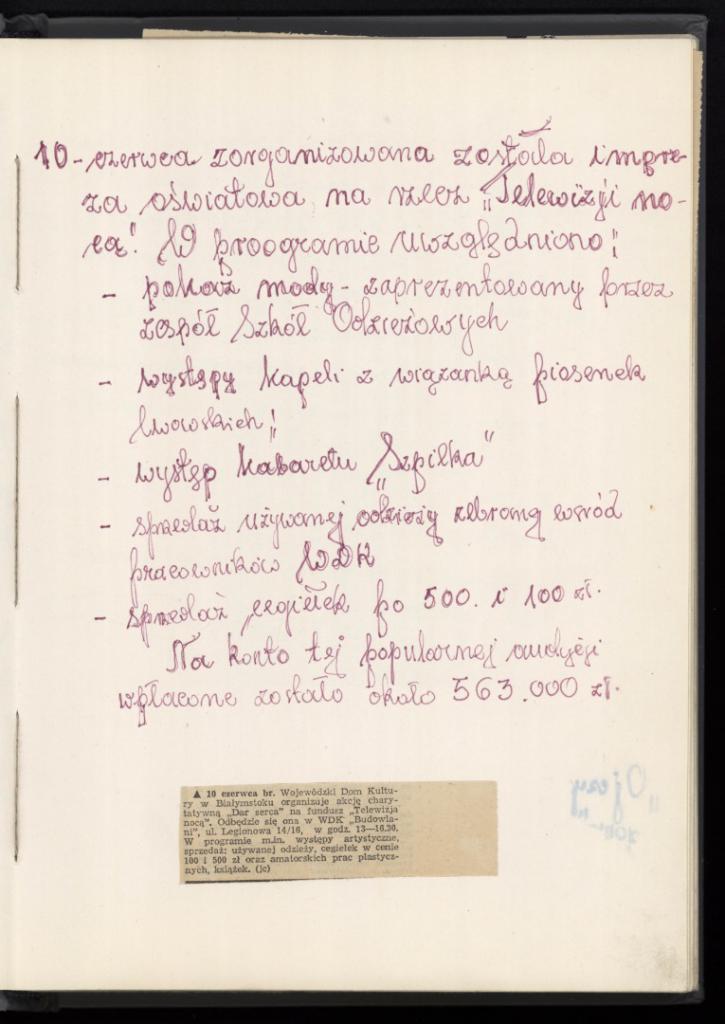 10 - czerwca zorganizowana została impre-
za oświatowa na rzecz „Telewizji no-
cą". W proogramie uwzględniono:
- pokaz mody - zaprezentowany przez
zespół Szkół Odzieżowych
- występy kapeli z wiązanką piosenek
lwowskich;
- występ kabaretu „Szpilka"
- sprzedaż używanej odzieży zebraną wśród
pracowników WDK
- sprzedaż cegiełek po 500. i 100 zł.
Na konto tej popularnej audycji
wpłacone zostało około 563.000 zł.
▲ 10 czerwca br. Wojewódzki Dom Kultu-
ry w Białymstoku organizuje akcję chary-
tatywną „Dar serca" na fundusz „Telewizja
nocą". Odbędzie się ona w WDK „Budowla-
ni", ul. Legionowa 14/16, w godz. 13—16.30.
W programie m.in. występy artystyczne,
sprzedaż: używanej odzieży, cegiełek w cenie
100 i 500 zł oraz amatorskich prac plastycz-
nych, książek. (jc)